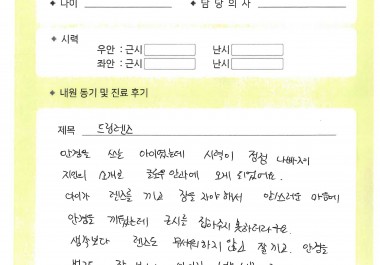 ◆ 나이
◆ 담 당 의 사
◆ 시력
우안 : 근시 난시
좌안 : 근시 난시
◆ 내원 동기 및 진료 후기
제목 드림렌즈
안경을 쓰는 아이였는데 시력이 점점 나빠져
지인의 소개로 안과에 오게 되었어요.
아이가 렌즈를 끼고 잠을 자야 해서 안쓰러운 마음에
안경을 끼웠는데 근시를 잡아주지 못하더라구요.
생각보다 렌즈도 무서워하지 않고 잘 끼고 안경을